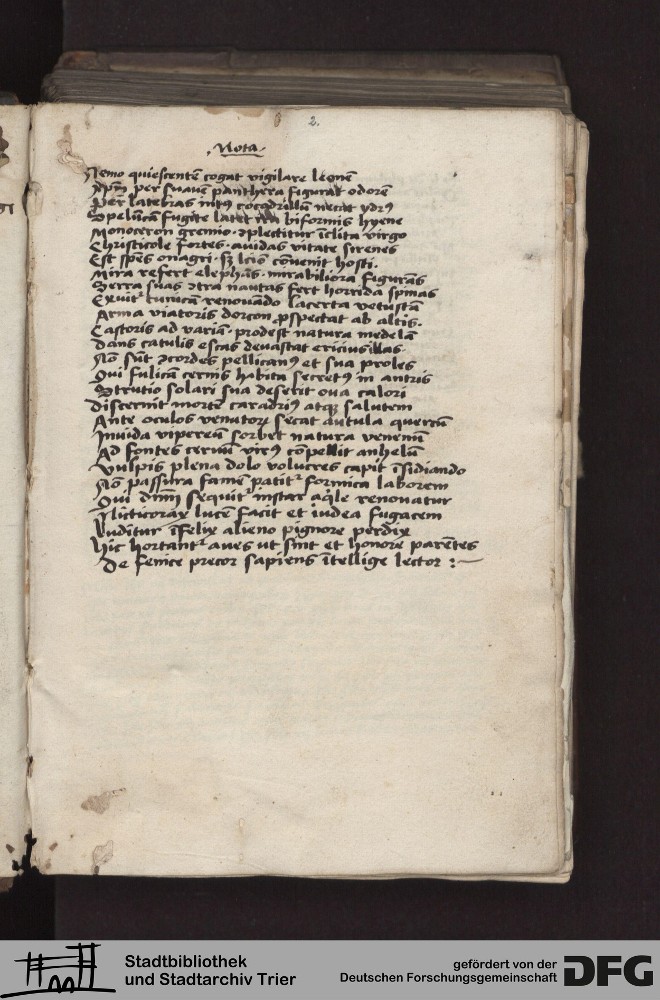 2.
Nota
Nemo quiescentē cogat vigilare leonē
Xpm̄ per suavē panthera figurat odorē
Per latebras intꝰ cocodrillū necat ydrꝰ
Spelūcā fugite latet biformis hyene
Monoceron gremio ꝯplectitur īclita virgo
Christicole fortes avidas vitate sirenes
Est spēs onagri sꝫ cōvenit hosti.
Mira refert elephās mirabiliora figurās
Serra suas ꝯtra nautas fert horrida spinas
Exuit tunicā renovādo lacerta vetustā
Arma viatoris dorcon ꝓspectat ab altis.
Castoris ad variā prodest natura medelā
Dans catulis escas devastat ericius illas
Nō sūt ꝯcordes pellicanꝰ et sua proles
Qui fulicā cernis habita secretꝰ in antris
Strutio solari sua deserit ova calori
Discernit mortē caradriꝰ atqꝫ salutem
Ante oculos venatoꝝ secat autula quercū
Invida vipereū sorbet natura venenū
Ad fontes cervū virꝰ cōpellit anhelū
Vulpis plena dolo volucres capit īsidiando
Nō passura famē patitr̄ formica laborem
Qui dn̄m sequitr̄ instar aqͥle renovatur
Nicticorax lucē facit et iudea fugacem
Luditur īfelix alieno pignore perdix
Hic hortantr̄ aves ut sint et honore parētes
De fenice precor sapiens ītellige lector :~
Stadtbibliothek
und Stadtarchiv Trier
gefördert von der
Deutschen Forschungsgemeinschaft
DFG